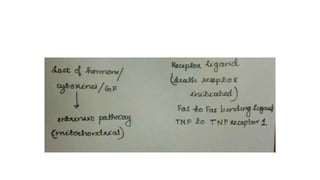 Lack of hormone/
cytokines/GF
↓
intrinsic pathway
(mitochondrial)
Receptor ligand
(death receptor
initiated)
Fas to Fas bending ligand
TNF to TNF receptor 1